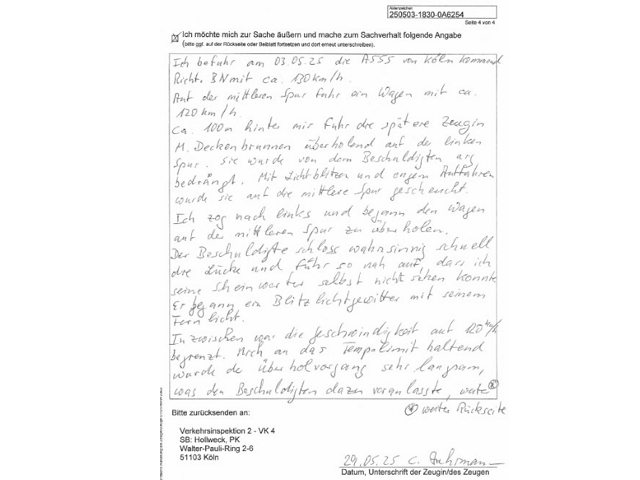 Aktenzeichen
250503-1830-0A6254
Seite 4 von 4
Ich möchte mich zur Sache äußern und mache zum Sachverhalt folgende Angabe
(bitte ggf. auf der Rückseite oder Beiblatt fortsetzen und dort erneut unterschreiben).
Ich befuhr am 03.05.25 die A555 von Köln kommend
Richt. BN mit ca. 130 km/h.
Auf der mittleren Spur fuhr ein Wagen mit ca.
120 km/h.
Ca. 100m hinter mir fuhr die spätere Zeugin
M. Deckenbrunnen überholend auf der linken
Spur. Sie wurde von dem Beschuldigten arg
bedrängt. Mit Lichtblitzen und engem Auffahren
wurde sie auf die mittlere Spur gescheucht.
Ich zog nach links und begann den Wagen
auf der mittleren Spur zu überholen.
Der Beschuldigte schloss wahnsinnig schnell
die Lücke und fuhr so nah auf, dass ich
seine Scheinwerfer selbst nicht sehen konnte
Er begann ein Blitzlichtgewitter mit seinem
Fernlicht.
Inzwischen war die Geschwindigkeit auf 120 km/h
begrenzt. Mich an das Tempolimit haltend
wurde de Überholvorgang sehr langsam,
was den Beschuldigten dazu veranlasste, weite
weiter Rückseite
Bitte zurücksenden an:
Verkehrsinspektion 2 - VK 4
SB: Hollweck, PK
Walter-Pauli-Ring 2-6
51103 Köln
29.05.25 C.
Datum, Unterschrift der Zeugin/des Zeugen